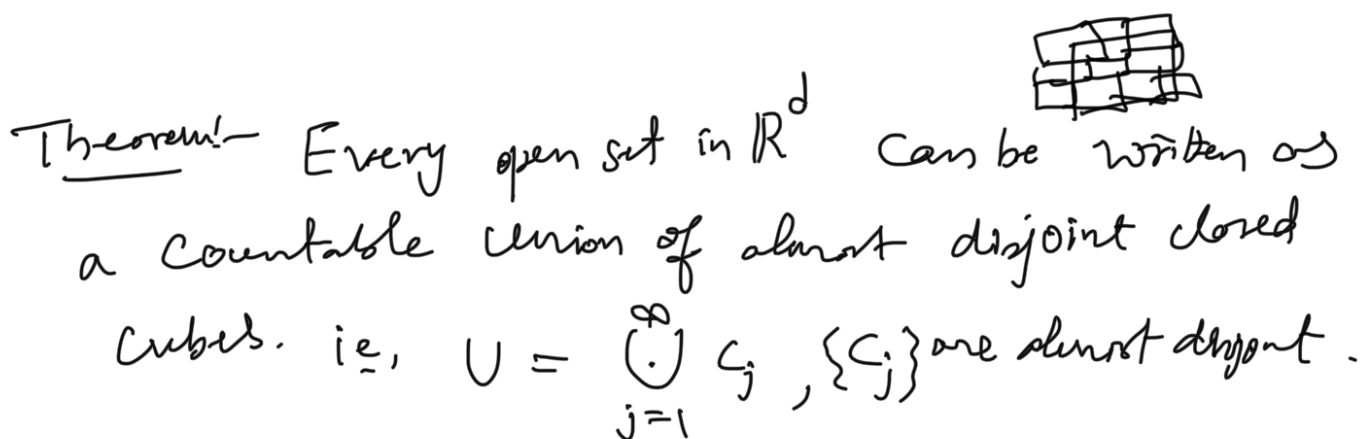 Theorem:- Every open set in ℝ^d can be written as
a countable union of almost disjoint closed
cubes. ie, U = ⨃_{j=1}^{∞} C_j , {C_j} are almost disjoint.